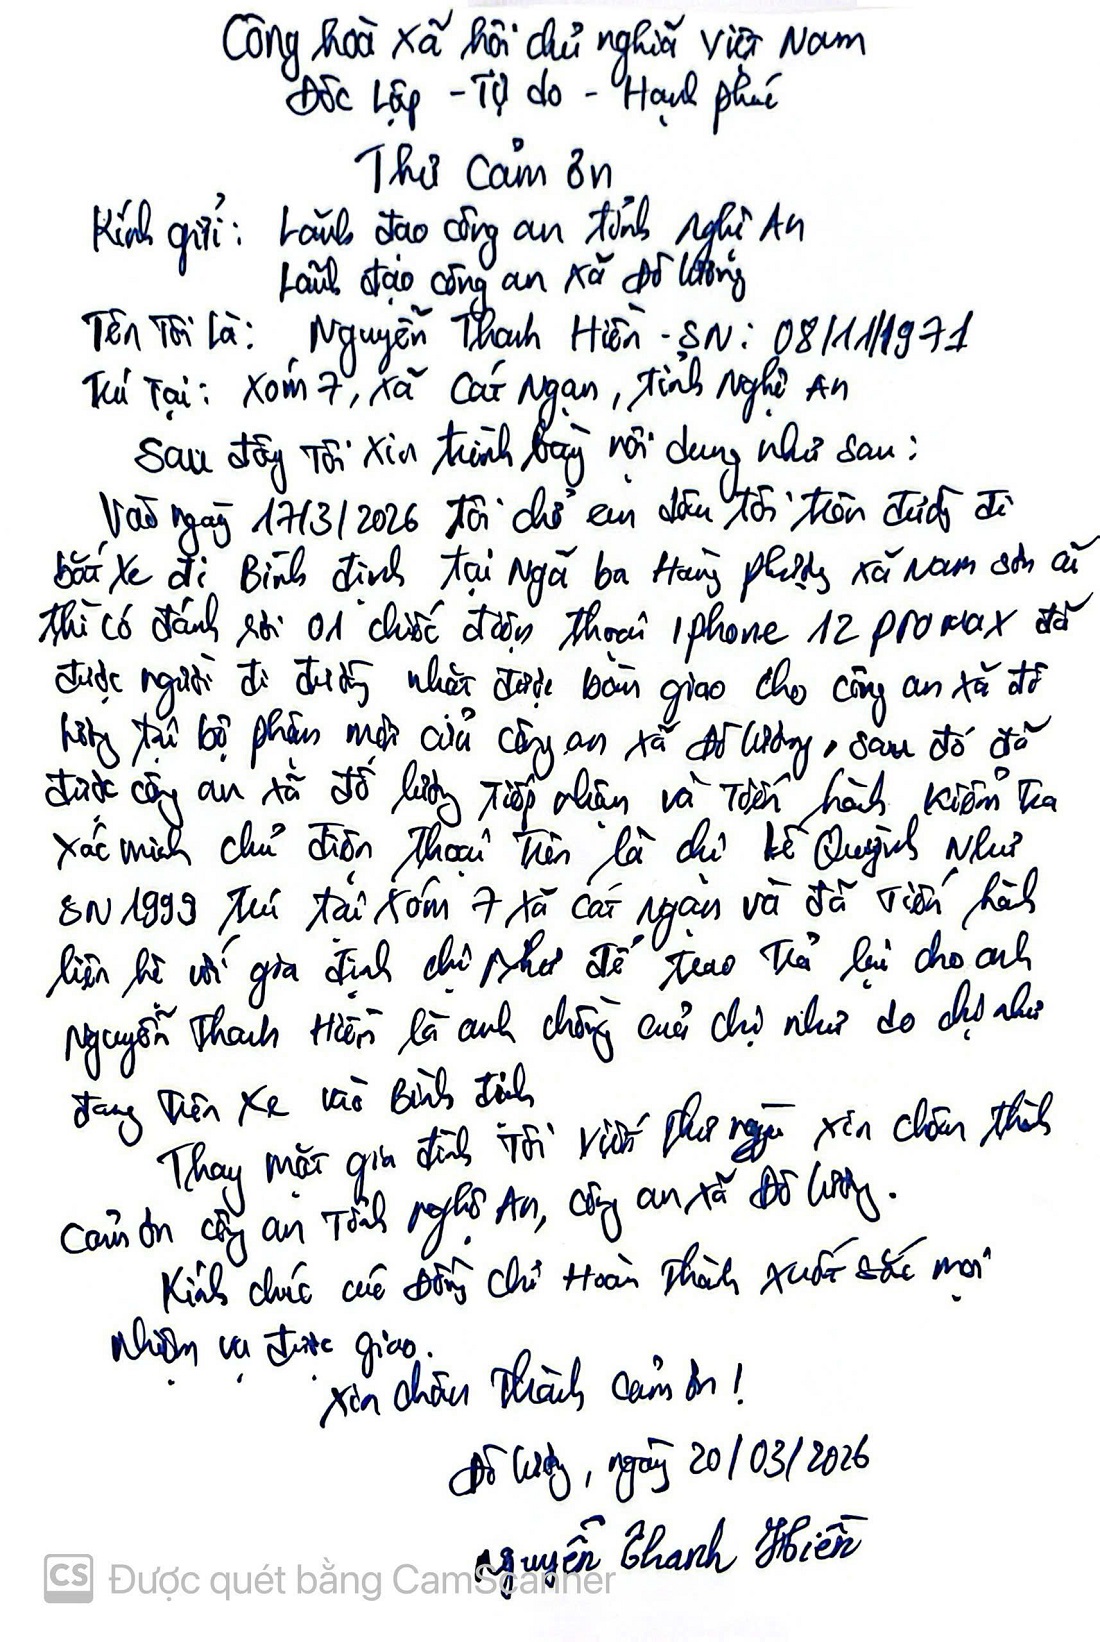 Công hoà xã hôi chủ nghiã Việt Nam
Độc Lập - Tự do - Hạnh phúc
Thư Cảm ơn
Kính gửi: Lãnh đạo công an tỉnh Nghệ An
Lãnh đạo công an xã Đô Lương
Tên Tôi là: Nguyễn Thanh Hiền - SN: 08/11/1971
Trú Tại: Xóm 7, xã Cát Ngạn, tỉnh Nghệ An
Sau đây Tôi xin trình bày nội dung như sau:
Vào ngày 17/3/2026 tôi chở em dâu tôi trên đường đi
bắt xe đi Bình định tại Ngã ba Hàng phượng xã Nam sơn cũ
thì có đánh rơi 01 chiếc điện thoại iphone 12 promax đã
được người đi đường nhặt được bàn giao cho công an xã đô
lương tại bộ phận một cửa công an xã Đô Lương, sau đó đã
được công an xã đô lương tiếp nhận và Tiến hành kiểm tra
xác minh chủ điện thoại trên là chị Lê Quỳnh Như
SN 1999 trú tại xóm 7 xã cát ngạn và đã tiến hành
liên hệ với gia đình chị Như để trao trả lại cho anh
Nguyễn Thanh Hiền là anh chồng của chị như do chị như
đang trên xe vào Bình định
Thay mặt gia đình Tôi viết thư này xin chân thành
cảm ơn công an Tỉnh nghệ An, công an xã Đô Lương.
Kính chúc các Đồng chí Hoàn Thành xuất sắc mọi
nhiệm vụ được giao.
Xin chân Thành cảm ơn!
Đô Lương, ngày 20/03/2026
Nguyễn Thanh Hiền
CS Được quét bằng CamScanner